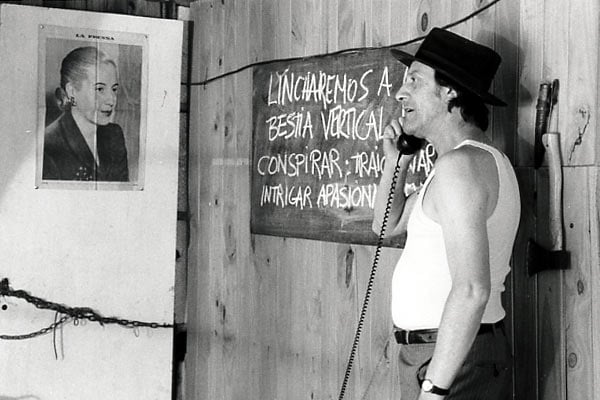 LA PRENSA
LINCHAREMOS A L
BESTIA VERTICAL
CONSPIRAR: TRAIC NAR
INTRIGAR APASION